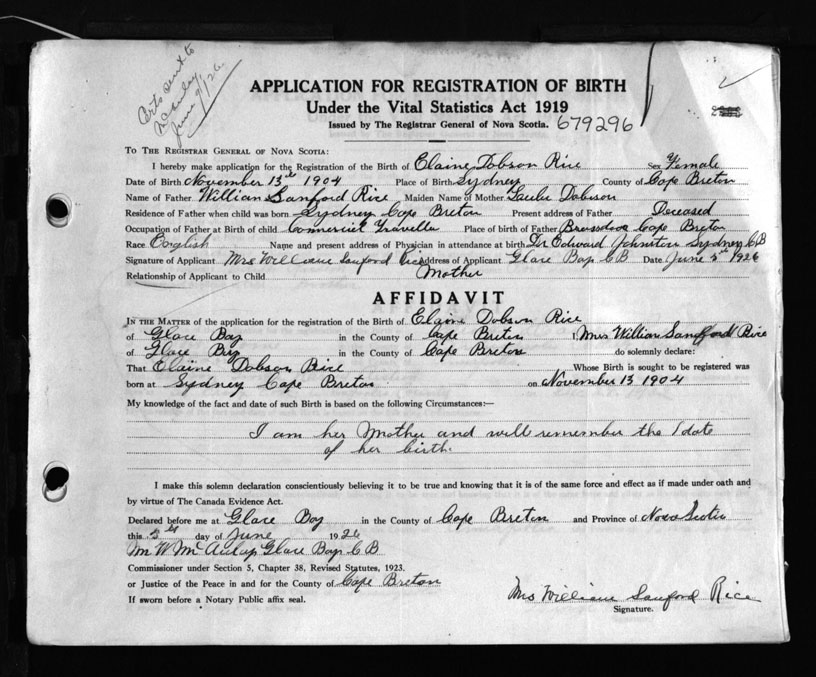 Certs sent to
McAulay
June 9/26
APPLICATION FOR REGISTRATION OF BIRTH
Under the Vital Statistics Act 1919
Issued by The Registrar General of Nova Scotia. 679296
TO THE REGISTRAR GENERAL OF NOVA SCOTIA:
I hereby make application for the Registration of the Birth of Elaine Dobson Rice Sex Female
Date of Birth November 13th 1904 Place of Birth Sydney County of Cape Breton
Name of Father William Sanford Rice Maiden Name of Mother Dobson
Residence of Father when child was born Sydney Cape Breton Present address of Father Deceased
Occupation of Father at Birth of child Commercial Traveller Place of birth of Father Cape Breton
Race English Name and present address of Physician in attendance at birth Dr Edward Johnston Sydney C B
Signature of Applicant Mrs William Sanford Rice Address of Applicant Glace Bay C B Date June 5th 1926
Relationship of Applicant to Child Mother
AFFIDAVIT
IN THE MATTER of the application for the registration of the Birth of Elaine Dobson Rice
of Glace Bay in the County of Cape Breton I, Mrs William Sandford Rice
of Glace Bay in the County of Cape Breton do solemnly declare:
That Elaine Dobson Rice Whose Birth is sought to be registered was
born at Sydney Cape Breton on November 13 1904
My knowledge of the fact and date of such Birth is based on the following Circumstances:—
I am her Mother and will remember the date
of her birth.
I make this solemn declaration conscientiously believing it to be true and knowing that it is of the same force and effect as if made under oath and
by virtue of The Canada Evidence Act.
Declared before me at Glace Bay in the County of Cape Breton and Province of Nova Scotia
this 5th day of June 1926
M W McAulay Glace Bay C B
Commissioner under Section 5, Chapter 38, Revised Statutes, 1923.
or Justice of the Peace in and for the County of Cape Breton
If sworn before a Notary Public affix seal.
Mrs William Sanford Rice
Signature.